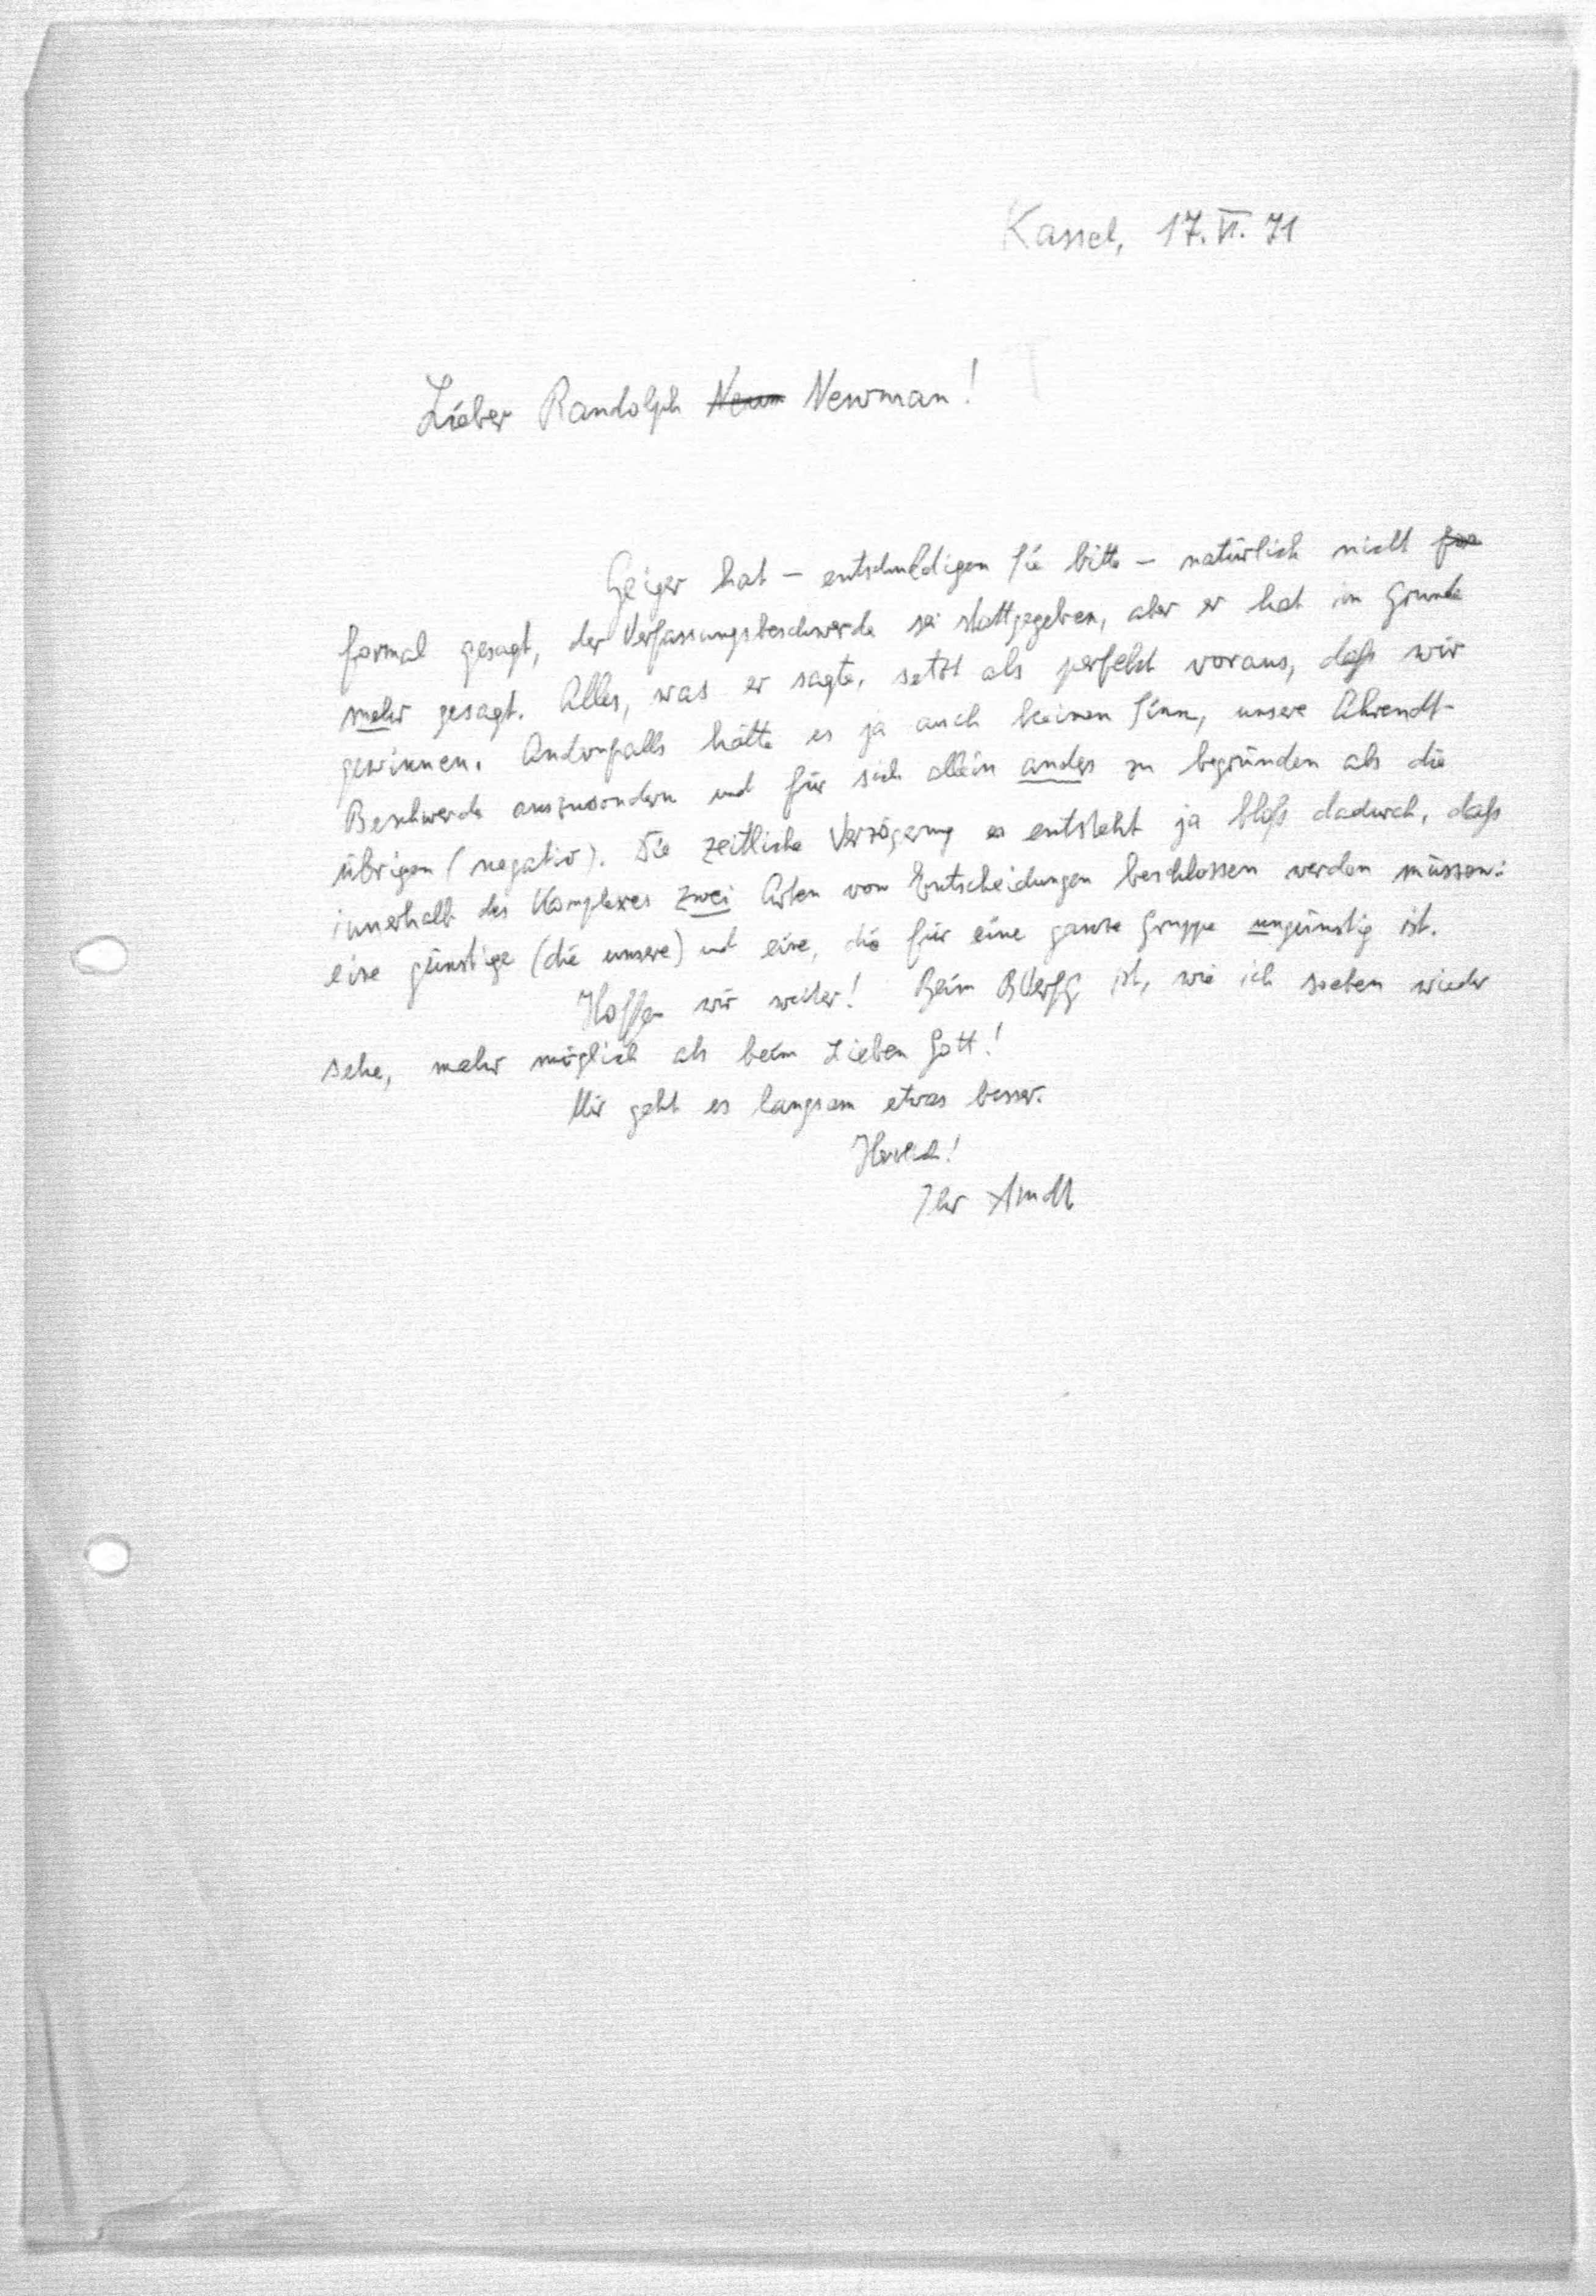 Kassel, 17. VI. 71
Lieber Randolph Neum Newman!
Geiger hat – entschuldigen Sie bitte – natürlich nicht for
formal gesagt, der Verfassungsbeschwerde sei stattgegeben, aber er hat im Grunde
mehr gesagt. Alles, was er sagte, setzt als perfekt voraus, daß wir
gewinnen. Andernfalls hätte es ja auch keinen Sinn, unsere Ahrendt-
Beschwerde auszusondern und für sich allein anders zu begründen als die
übrigen (negativ). Die zeitliche Verzögerung entsteht ja bloß dadurch, daß
innerhalb des Komplexes zwei Arten von Entscheidungen beschlossen werden müssen:
eine günstige (die unsere) und eine, die für eine ganze Gruppe ungünstig ist.
Hoffen wir weiter! Beim BVerfG ist, wie ich soeben wieder
sehe, mehr möglich als beim Lieben Gott!
Mir geht es langsam etwas besser.
Herzlich!
Ihr Arndt